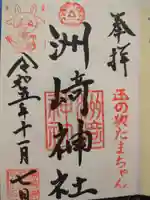 奉拝
正の次たまちゃん
洲崎神社
令和五年十一月七日